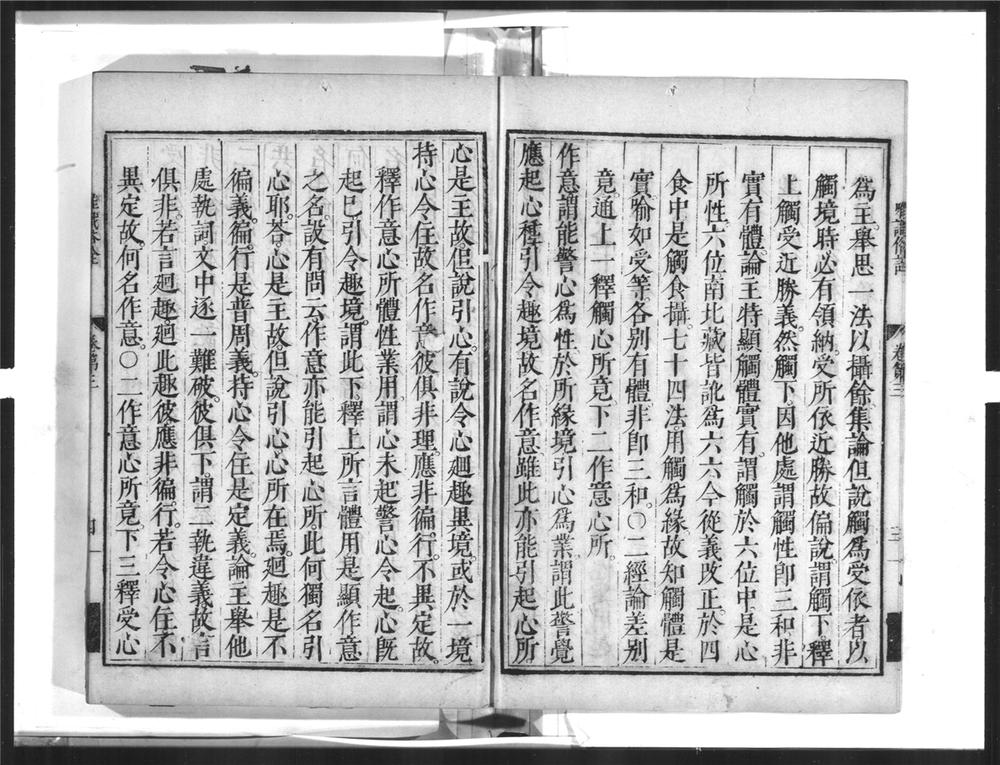 為主舉思一法以攝餘集論但說觸為受依者以
觸境時必有領納受所依近勝故偏說謂觸下釋
上觸受近勝義然觸下因他處謂觸性即三和非
實有體論主特顯觸體實有謂觸於六位中是心
所性六位南北藏皆訛為六六今從義改正於四
食中是觸食攝七十四法用觸為緣故知觸體是
實喻如受等各別有體非即三和〇二經論差別
竟通上一釋觸心所竟下二作意心所
作意謂能警心為性於所緣境引心為業謂此警覺
應起心種引令趣境故名作意雖此亦能引起心所
心是主故但說引心有說令心迴趣異境或於一境
持心令住故名作意彼俱非理應非徧行不異定故
釋作意心所體性業用謂心未起警心令起心旣
起已引令趣境謂此下釋上所言體用是顯作意
之名設有問云作意亦能引起心所此何獨名引
心耶荅心是主故但說引心心所在焉迴趣是不
徧義徧行是普周義持心令住是定義論主舉他
處執詞文中逐一難破彼俱下謂二執違義故言
俱非若言迴趣迴此趣彼應非徧行若令心住不
異定故何名作意〇二作意心所竟下三釋受心
卷第三
三
卷第三
四